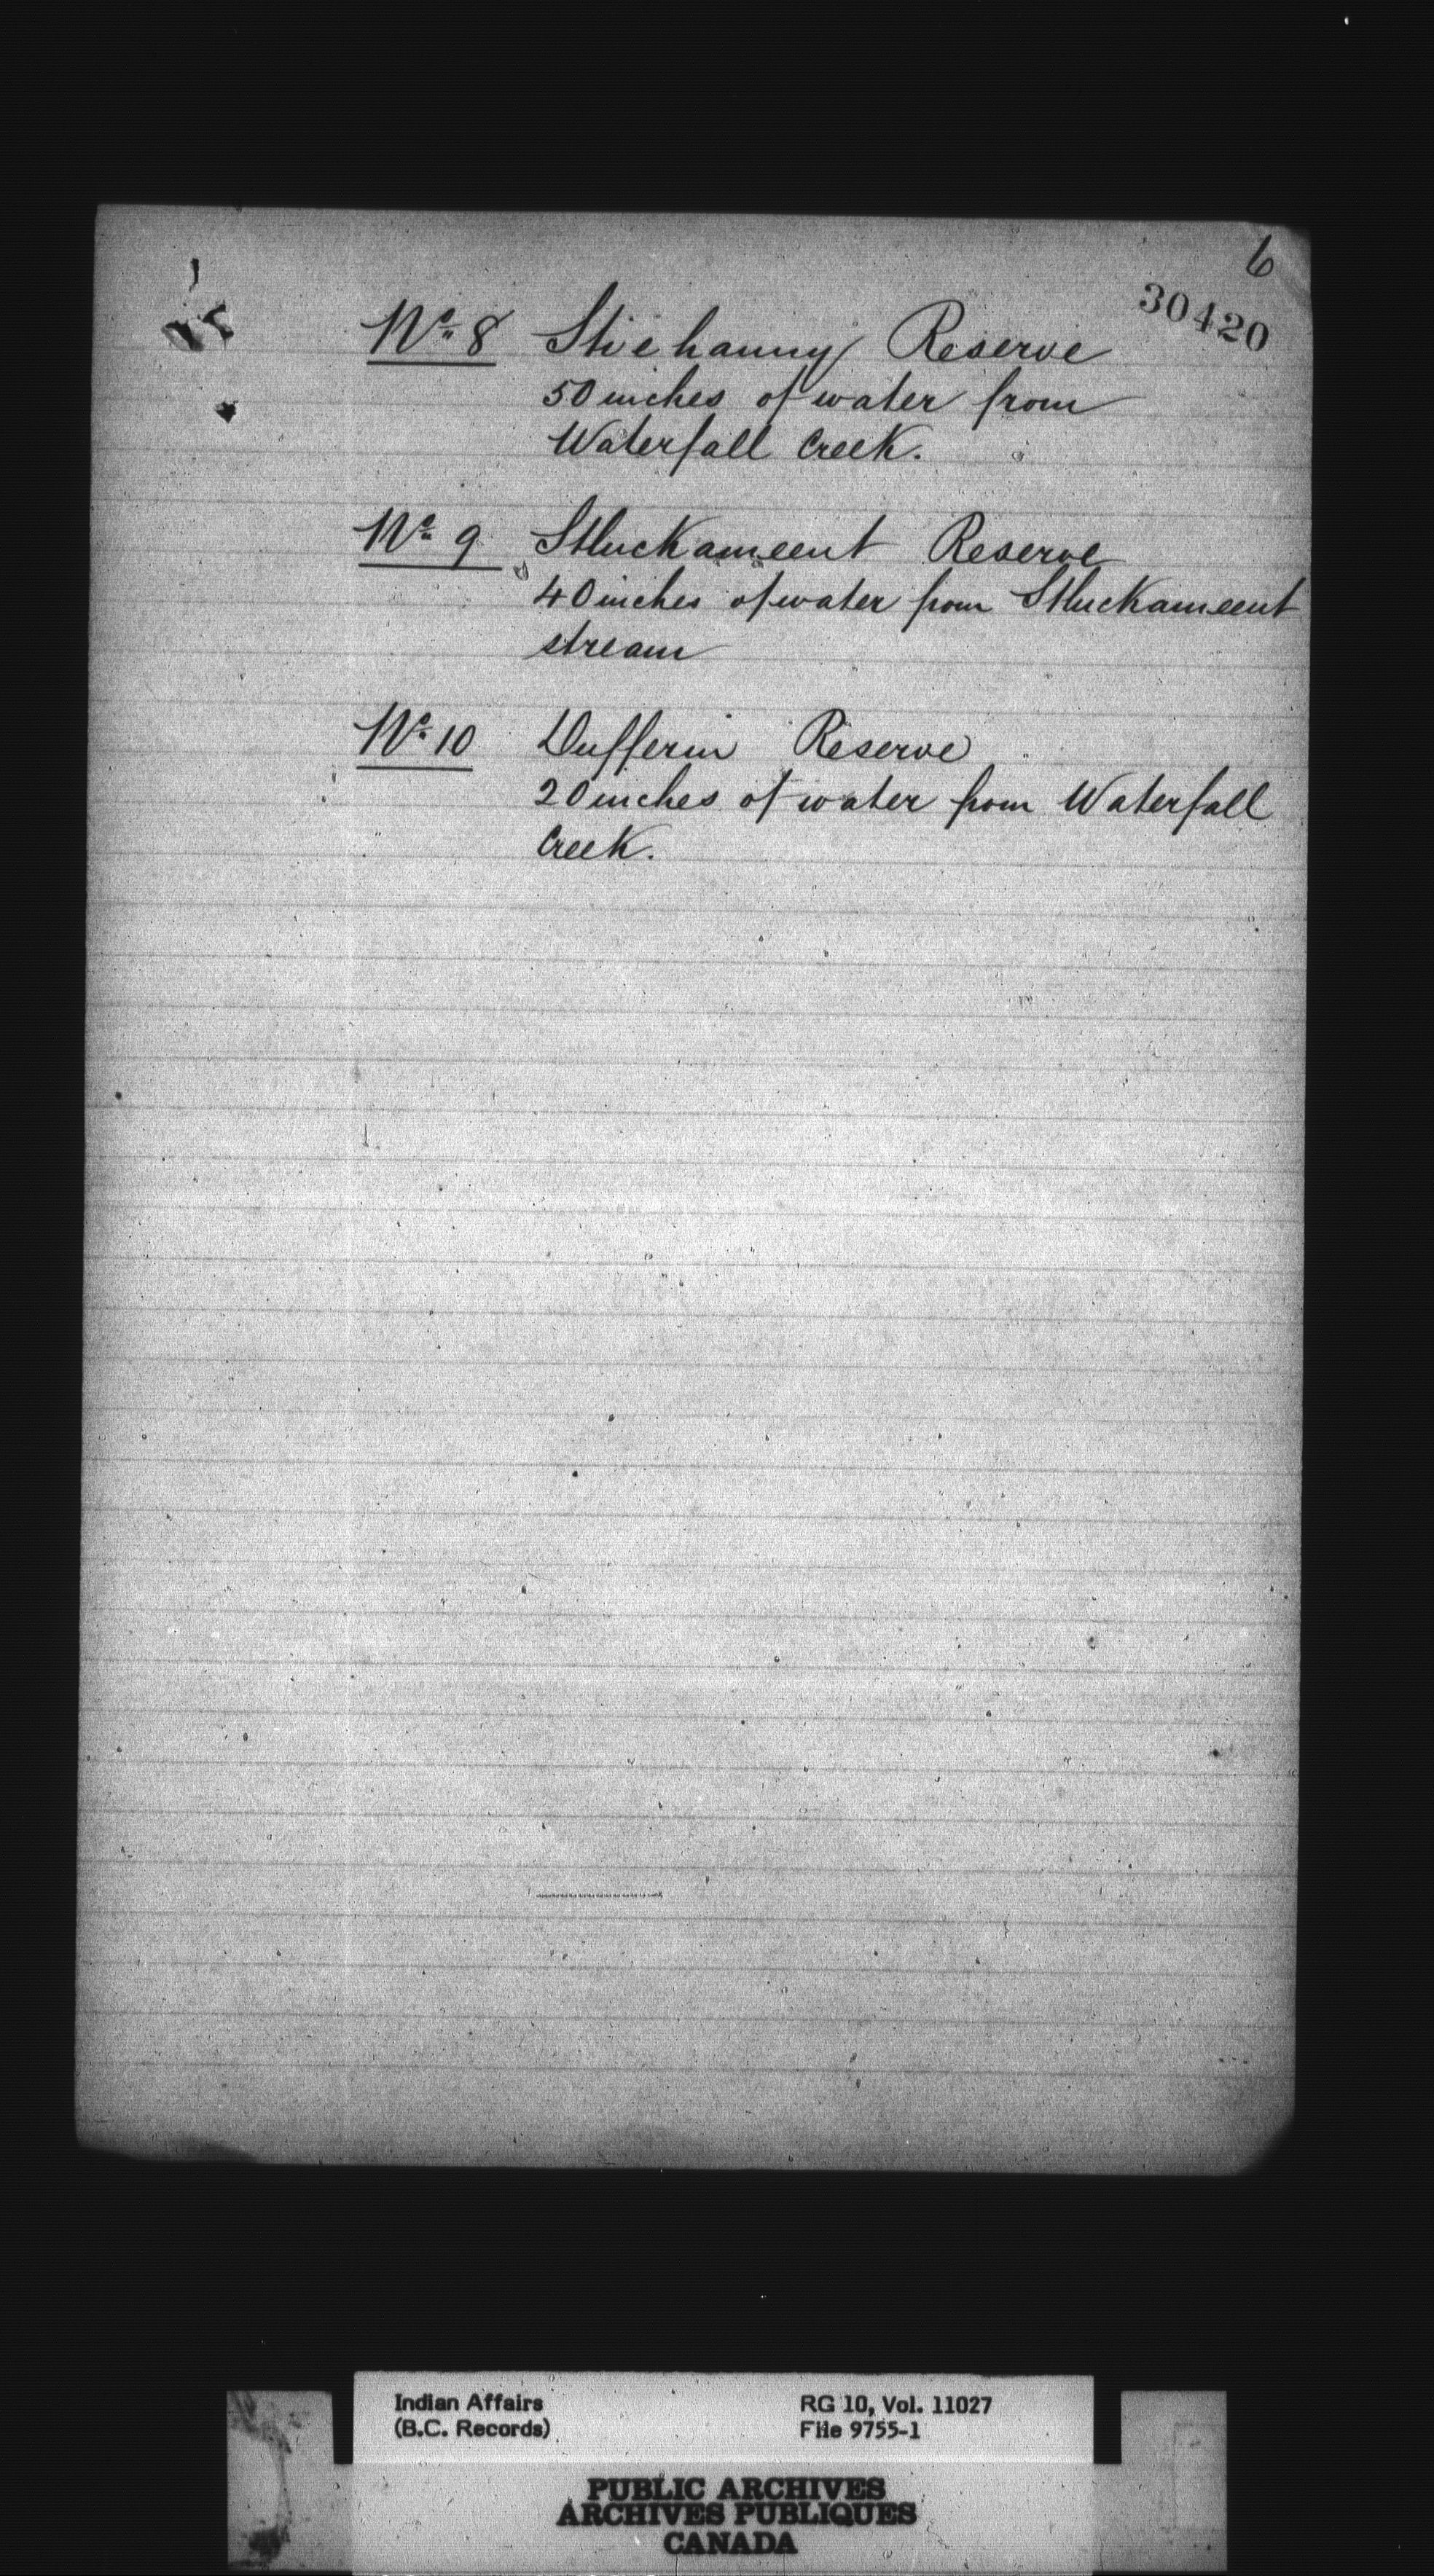 6
30420
No. 8 Stiehanny Reserve
50 inches of water from
Waterfall Creek.
No. 9 Stluckameent Reserve
40 inches of water from Stluckameent
stream
No. 10 Dufferin Reserve
20 inches of water from Waterfall
Creek.
Indian Affairs RG 10, Vol. 11027
(B.C. Records) File 9755-1
PUBLIC ARCHIVES
ARCHIVES PUBLIQUES
CANADA